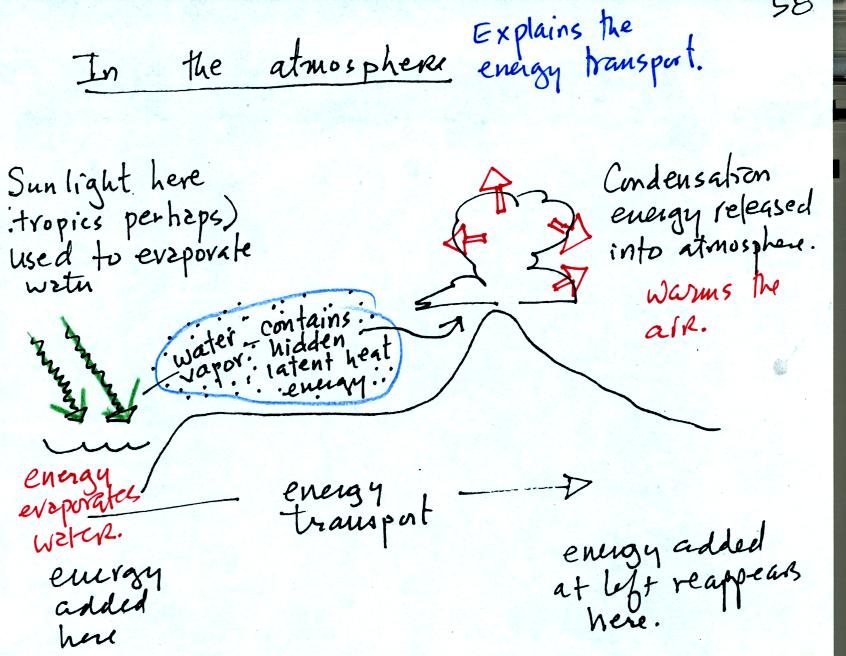 58
In the atmosphere
Explains the
energy transport.
Sunlight here
(tropics perhaps)
used to evaporate
water
Condensation
energy released
into atmosphere.
warms the
air.
water - contains
vapor. hidden
latent heat
energy
energy
evaporates
water.
energy
added
here
energy
transport
energy added
at left reappears
here.